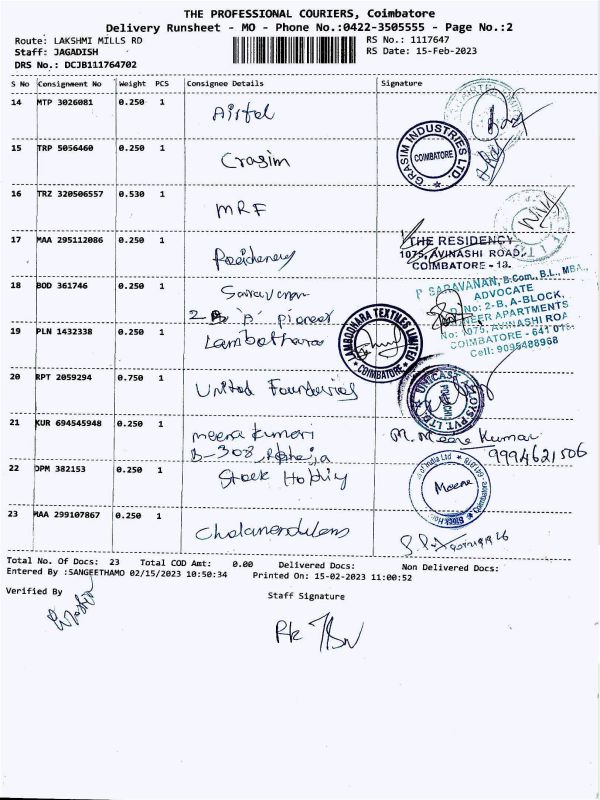 THE PROFESSIONAL COURIERS, Coimbatore
Delivery Runsheet - MO - Phone No.:0422-3505555 - Page No.:2
Route: LAKSHMI MILLS RD
RS No.: 1117647
Staff: JAGADISH
RS Date: 15-Feb-2023
DRS No.: DCJB111764702
S No Consignment No Weight PCS Consignee Details Signature
14 MTP 3026081 0.250 1 Airtel
15 TRP 5056460 0.250 1 Grasim
GRASIM INDUSTRIES LTD. COIMBATORE
16 TRZ 320506557 0.530 1 MRF
17 MAA 295112086 0.250 1 Residency
THE RESIDENCY
1075, AVINASHI ROAD,
COIMBATORE - 18.
18 BOD 361746 0.250 1 Saravanan
2 'A' pioneer
P SARAVANAN, B.Com., B.L., MBA.,
ADVOCATE
No: 2-B, A-BLOCK,
APARTMENTS
No: 1075, AVINASHI ROA
COIMBATORE - 641 018.
Cell: 9095488968
19 PLN 1432338 0.250 1 Lambothara
LAMBODHARA TEXTILES LIMITED COIMBATORE
20 RPT 2059294 0.750 1 United Foundries
UNICAST ALLOYS PVT. LTD.
21 KUR 694545948 0.250 1 meena kumari
B-308, Raheja
M. Meena Kumari
9994621506
22 DPM 382153 0.250 1 Stock Holding
of India Ltd
Stock Hol
Coimbatore
Meena
23 MAA 299107867 0.250 1 Cholamandalam
Total No. Of Docs: 23 Total COD Amt: 0.00 Delivered Docs: Non Delivered Docs:
Entered By :SANGEETHAMO 02/15/2023 10:50:34 Printed On: 15-02-2023 11:00:52
Verified By
Staff Signature